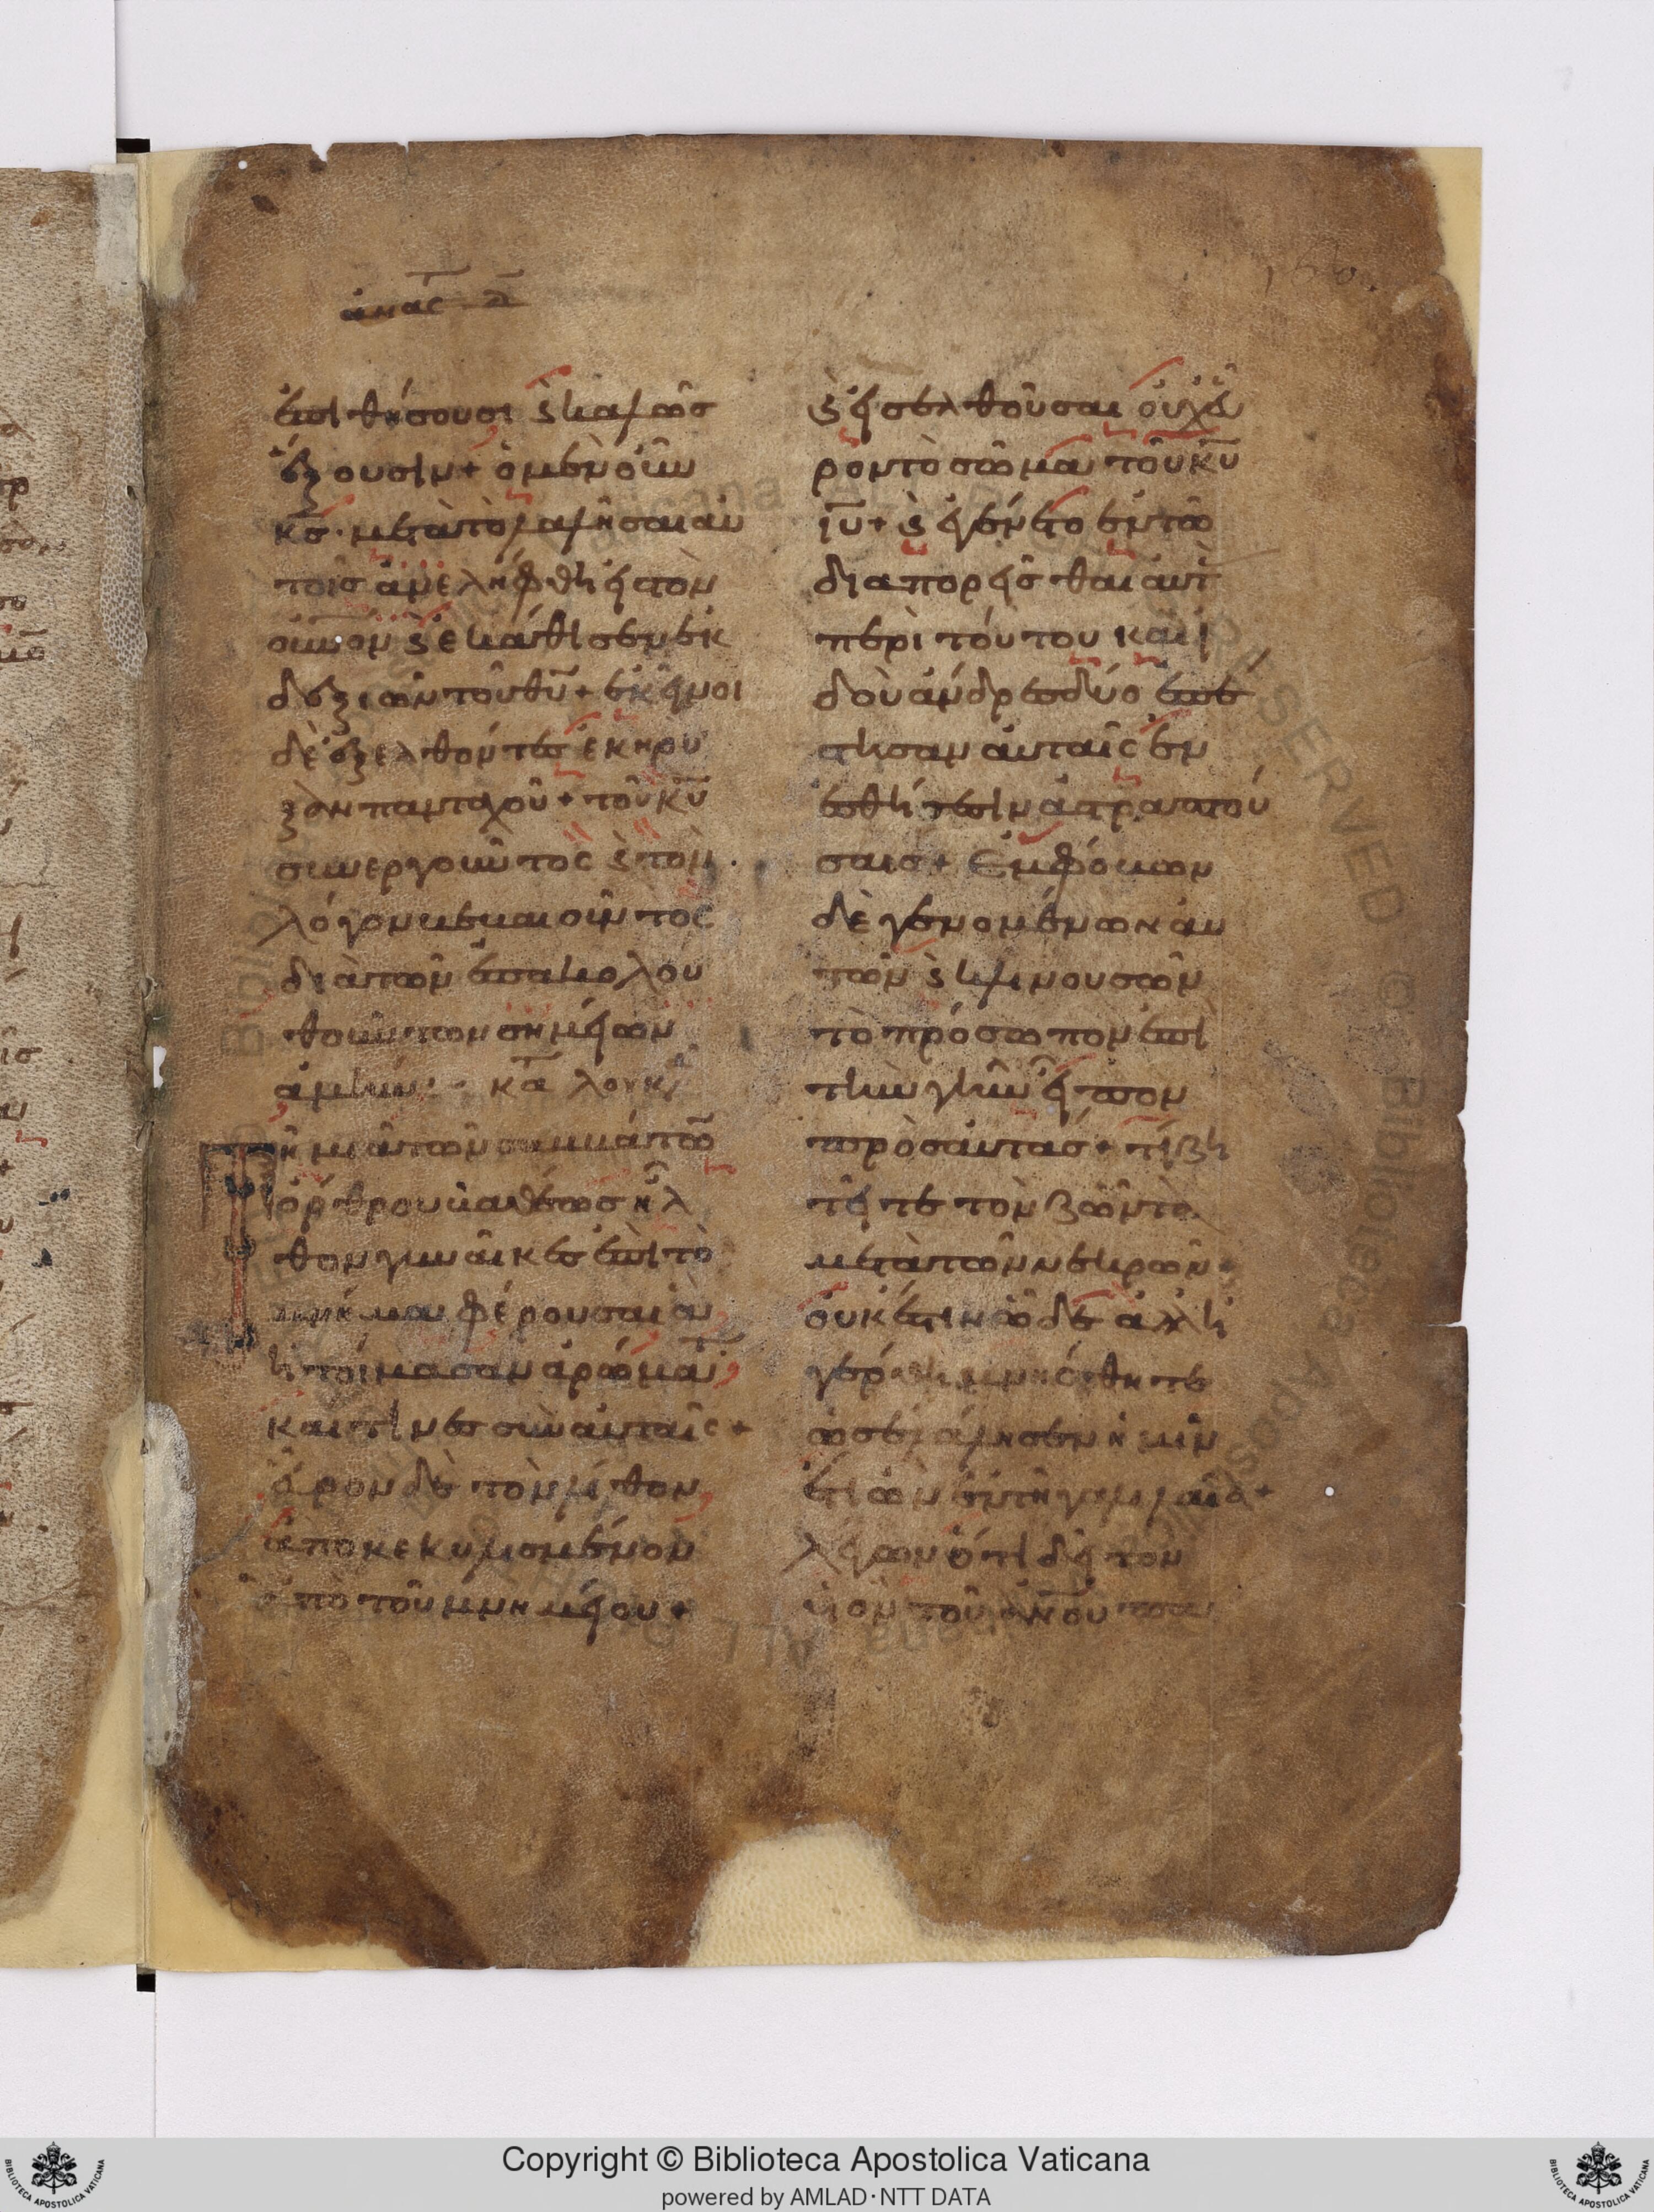 ἀνας̅ δ̅
ἐπιθήσουσι ϗ καλῶσ
ἕξουσιν + ὁ μὲν οὖν
κ̅σ̅ · μετὰ τὸ λαλῆσαι αὐ
τοῖσ ἀνελήφθη εἰς τὸν
οὐ̅νο̅ν ϗ εκάθισεν ἐκ
δεξιῶν τοῦ θ̅υ̅ + ἐκεῖνοι
δὲ ἐξελθόντεσ ἐκήρυ
ξαν πανταχοῦ + τοῦ κ̅υ̅
συνεργοῦντος ϗ τὸν
λόγον βεβαιοῦντος
διὰ τῶν ἐπακολου
θούντων σημείων
ἀμήν : κα̅τ̅ λουκ
Τῆ μιᾶ τῶν σαββάτω̅
ὄρθρου βαθέωσ ἦλ
θον γυναῖκεσ ἐπὶ τὸ
μνῆμα φέρουσαι ἃ
ἡτοίμασαν ἀρώματ̅
και τινεσ σὺν αὐταῖς +
εὗρον δὲ τὸν λίθον
ἀποκεκυλισμένον
ἀπὸ τοῦ μνημείου +
ϗ εἰσελθοῦσαι οὐχ εὗ
ρον τὸ σῶμα τοῦ κ̅υ̅
ι̅υ̅ + ϗ ἐγένετο ἐν τῶ
διαπορεῖσθαι αὐτ̅
περὶ τούτου και ἰ
δοὺ ἄνδρεσ δύο ἐπέ
στησαν αὐταῖς ἐν
ἐσθήσεσιν ἀστραπτού
σαισ + Ἐμφόβων
δὲ γενομένων αὐ
τῶν ϗ κλινουσῶν
τὸ πρόσωπον ἐπὶ
τὴν γῆν εἶπον
πρὸσ αὐτάσ + τί ζη
τεῖτε τὸν ζῶντα
μετὰ τῶν νεκρῶν +
οὐκ ἔστιν ὧδε ἀλλ ἠ
γέρθη μνήσθητε
ὡσ ἐλάλησεν ἡμῖν
ἔτι ὢν ἐν τῆ γαλιλαία +
λέγων ὅτι δεῖ τὸν
υἱὸν τοῦ ἀ̅ν̅ο̅υ̅ παρα